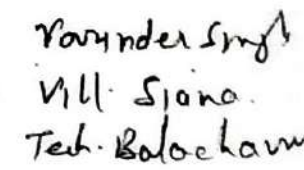 Ravinder Singh
Vill. Siana.
Teh. Balachaur